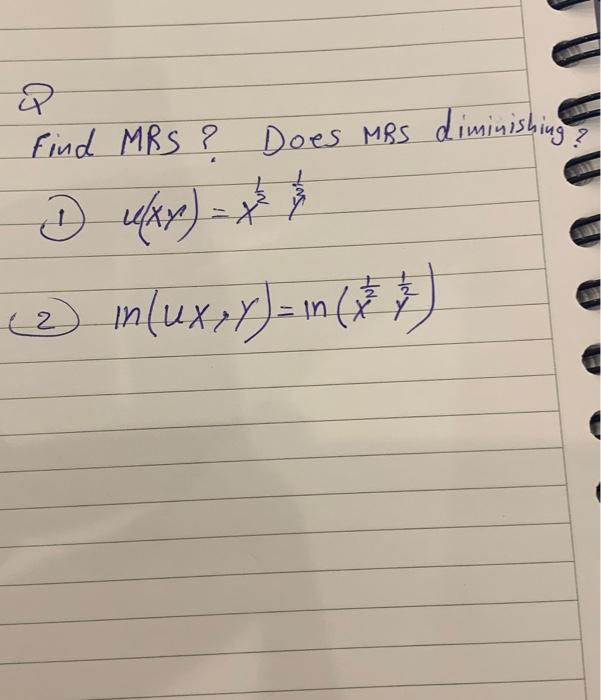 Q
Find MRS ? Does MRS diminishing ?
① u(xy) = x^½ y^½
(2) ln(ux,y) = ln(x^½ y^½)